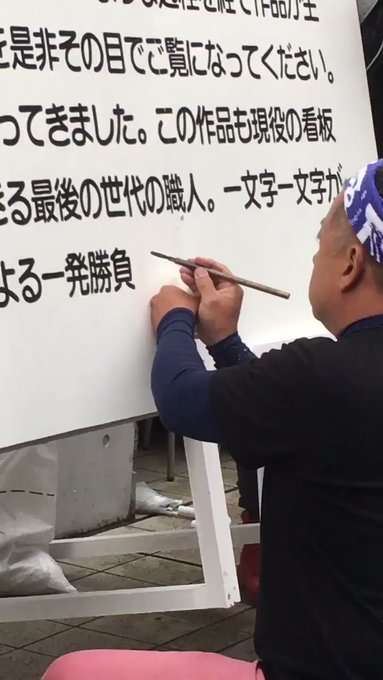 な過程を経て作品が生
を是非その目でご覧になってください。
ってきました。この作品も現役の看板
きる最後の世代の職人。一文字一文字が
よる一発勝負